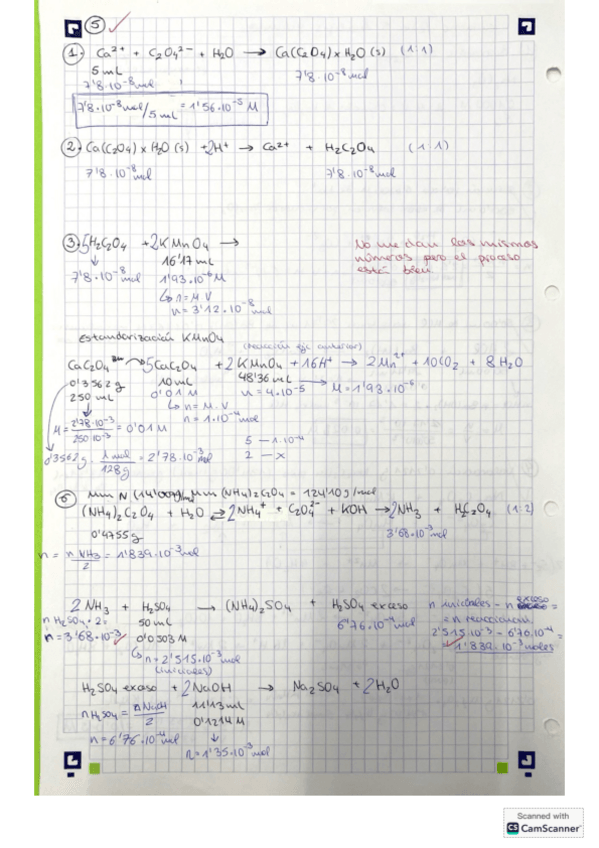 ⑤ ✓
1. Ca²⁺ + C₂O₄²⁻ + H₂O → Ca(C₂O₄)×H₂O (s) (1:1)
5 mL
7'8·10⁻⁸ mol 7'8·10⁻⁸ mol
7'8·10⁻⁸ mol/5 mL = 1'56·10⁻⁵ M
2. Ca(C₂O₄)×H₂O (s) + 2H⁺ → Ca²⁺ + H₂C₂O₄ (1:1)
7'8·10⁻⁸ mol 7'8·10⁻⁸ mol
3. 5H₂C₂O₄ + 2KMnO₄ →
↓ 16'17 mL
7'8·10⁻⁸ mol 1'93·10⁻⁶ M
↳ n = M·V
n = 3'12·10⁻⁸ mol
No me dan los mismos
números pero el proceso
está bien.
estandarización KMnO₄
CaC₂O₄ 5CaC₂O₄ + 2KMnO₄ + 16H⁺ → 2Mn²⁺ + 10CO₂ + 8H₂O
0'3562 g 10 mL 48'36 mL → M = 1'93·10⁻⁶
250 mL 0'01 M n = 4·10⁻⁵
↓ ↳ n = M·V
n = 1·10⁻⁴ mol
M = 2'78·10⁻³/250·10⁻³ = 0'01 M
5 — 1·10⁻⁴
2 — x
0'3562 g · 1 mol/128 g = 2'78·10⁻³ mol
⑥ Mm N (14'007 g/mol) Mm (NH₄)₂C₂O₄ = 124'10 g/mol
(NH₄)₂C₂O₄ + H₂O ⇄ 2NH₄⁺ + C₂O₄²⁻ + KOH → 2NH₃ + H₂C₂O₄ (1:2)
0'4755 g 3'68·10⁻³ mol
n = n NH₃/2 = 1'839·10⁻³ mol
2NH₃ + H₂SO₄ → (NH₄)₂SO₄ + H₂SO₄ exceso
n H₂SO₄·2 = 50 mL 6'76·10⁻⁴ mol
n = 3'68·10⁻³ ✓ 0'0503 M
↳ n = 2'515·10⁻³ mol
(iniciales)
n iniciales - n exceso =
= n reaccionan
2'515·10⁻³ - 6'76·10⁻⁴ =
✓ 1'839·10⁻³ moles
H₂SO₄ exceso + 2NaOH → Na₂SO₄ + 2H₂O
n H₂SO₄ = n NaOH/2 11'13 mL
0'1214 M
n = 6'76·10⁻⁴ mol ↓
n = 1'35·10⁻³ mol
Scanned with
CS CamScanner